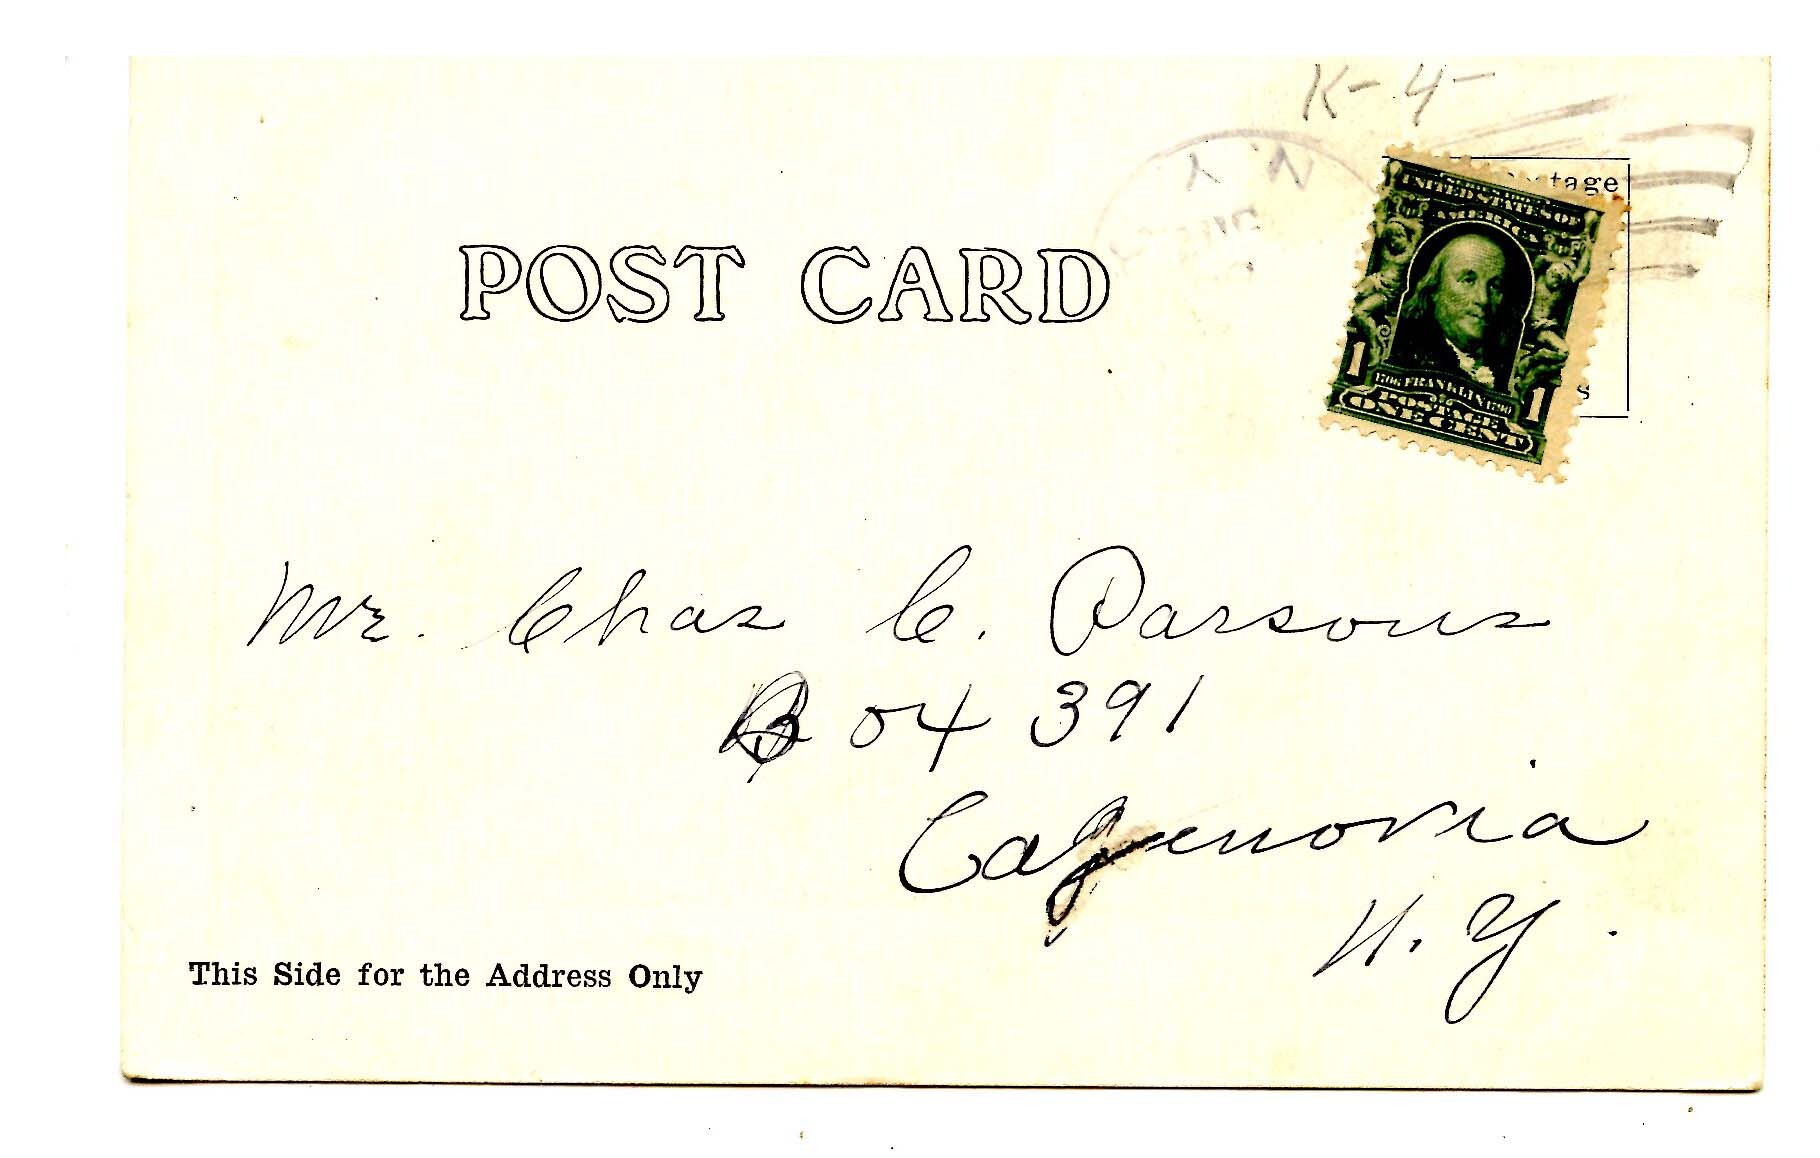 K-4-
N. Y.
tage
UNITED STATES OF
AMERICA
POST CARD
1 1706 FRANKLIN 1790 1
POSTAGE
ONE CENT
s
Mr. Chas C. Parsons
Box 391
Cazenovia
N. Y.
This Side for the Address Only